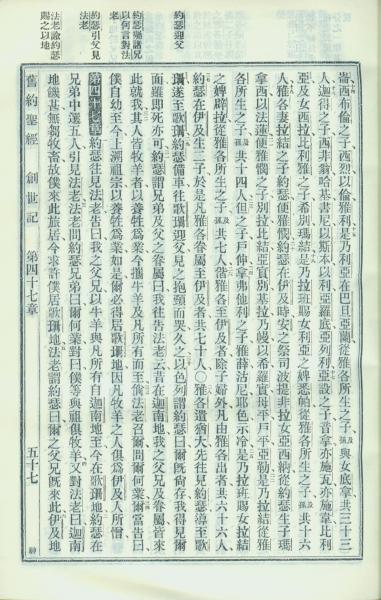 崙西布倫之子西烈以倫雅利是乃利亞在巴旦亞蘭從雅各所生之子孫與女底拿共三十三
人迦得之子西非翁哈基書尼以斯本以利亞羅底亞列利亞設之子音拿亦施瓦亦施韋比利
亞及女西拉比利雅之子希別瑪結是乃拉班賜女利亞之婢悉帕從雅各所生之子孫共十六
人雅各妻拉結之子約瑟便雅憫約瑟在伊及時安之祭司波提非拉女亞西納從約瑟生子瑪
拿西以法蓮便雅憫之子別拉比結亞實別基拉乃幔以希羅實母平戶平亞勒是乃拉結從雅
各所生之子孫共十四人但之子戶伸拿弗他利之子雅薛沽尼耶色示冷是乃拉班賜女拉結
之婢辟拉從雅各所生之子孫共七人偕雅各至伊及者除子婦外凡由雅各出者共六十六人
約瑟在伊及生二子於是凡雅各眷屬至伊及者共七十人〇雅各遣猶大先往見約瑟導至歌
珊遂至歌珊約瑟備車往歌珊迎父見之抱頸而哭久之以色列謂約瑟曰爾既尚存我得見爾
面雖即死亦可約瑟謂兄弟及父之眷屬曰我往告法老云昔在迦南地我之父兄及眷屬皆來
此就我其人皆牧羊者以養牲爲業今攜牛羊及凡所有而至倘法老召爾問爾何業爾當告曰
僕自幼至今上溯祖宗以養牲爲業如是爾必得居歌珊地因凡牧羊之人俱爲伊及人所憎
第四十七章 約瑟往見法老告曰我之父兄以牛羊與凡所有自迦南地至今在歌珊地約瑟在
兄弟中選五人引見法老法老問約瑟兄弟曰爾何業對曰僕等與祖俱牧羊又對法老曰迦南
地饑甚無芻牧畜故僕來此旅居今求許僕居歌珊地法老謂約瑟曰爾之父兄既來此伊及地
約瑟迎父
約瑟導諸兄
以何言對法
老
約瑟引父見
法老
法老諭約瑟
賜之以地
舊約聖經 創世記 第四十七章 五十七